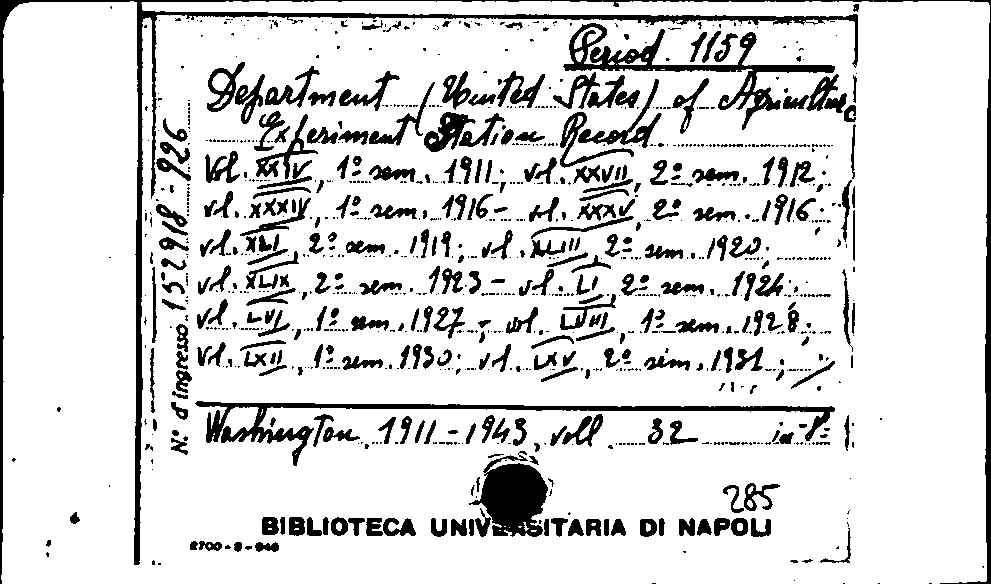 Period. 1159
Department (United States) of Agriculture
Experiment Station Record.
Vol. XXIV, 1º sem. 1911; vol. XXVII, 2º sem. 1912;
vol. XXXIV, 1º sem. 1916 - vol. XXXV, 2º sem. 1916;
vol. XLI, 2º sem. 1919; vol. XLIII, 2º sem. 1920;
vol. XLIX, 2º sem. 1923 - vol. LI, 2º sem. 1924;
vol. LVI, 1º sem. 1927 - vol. LVIII, 1º sem. 1928;
vol. LXII, 1º sem. 1930; vol. LXV, 2º sem. 1931; ./.
N.º d'ingresso 152918-926
Washington, 1911-1943, voll. 32 in-8º
285
BIBLIOTECA UNIVERSITARIA DI NAPOLI